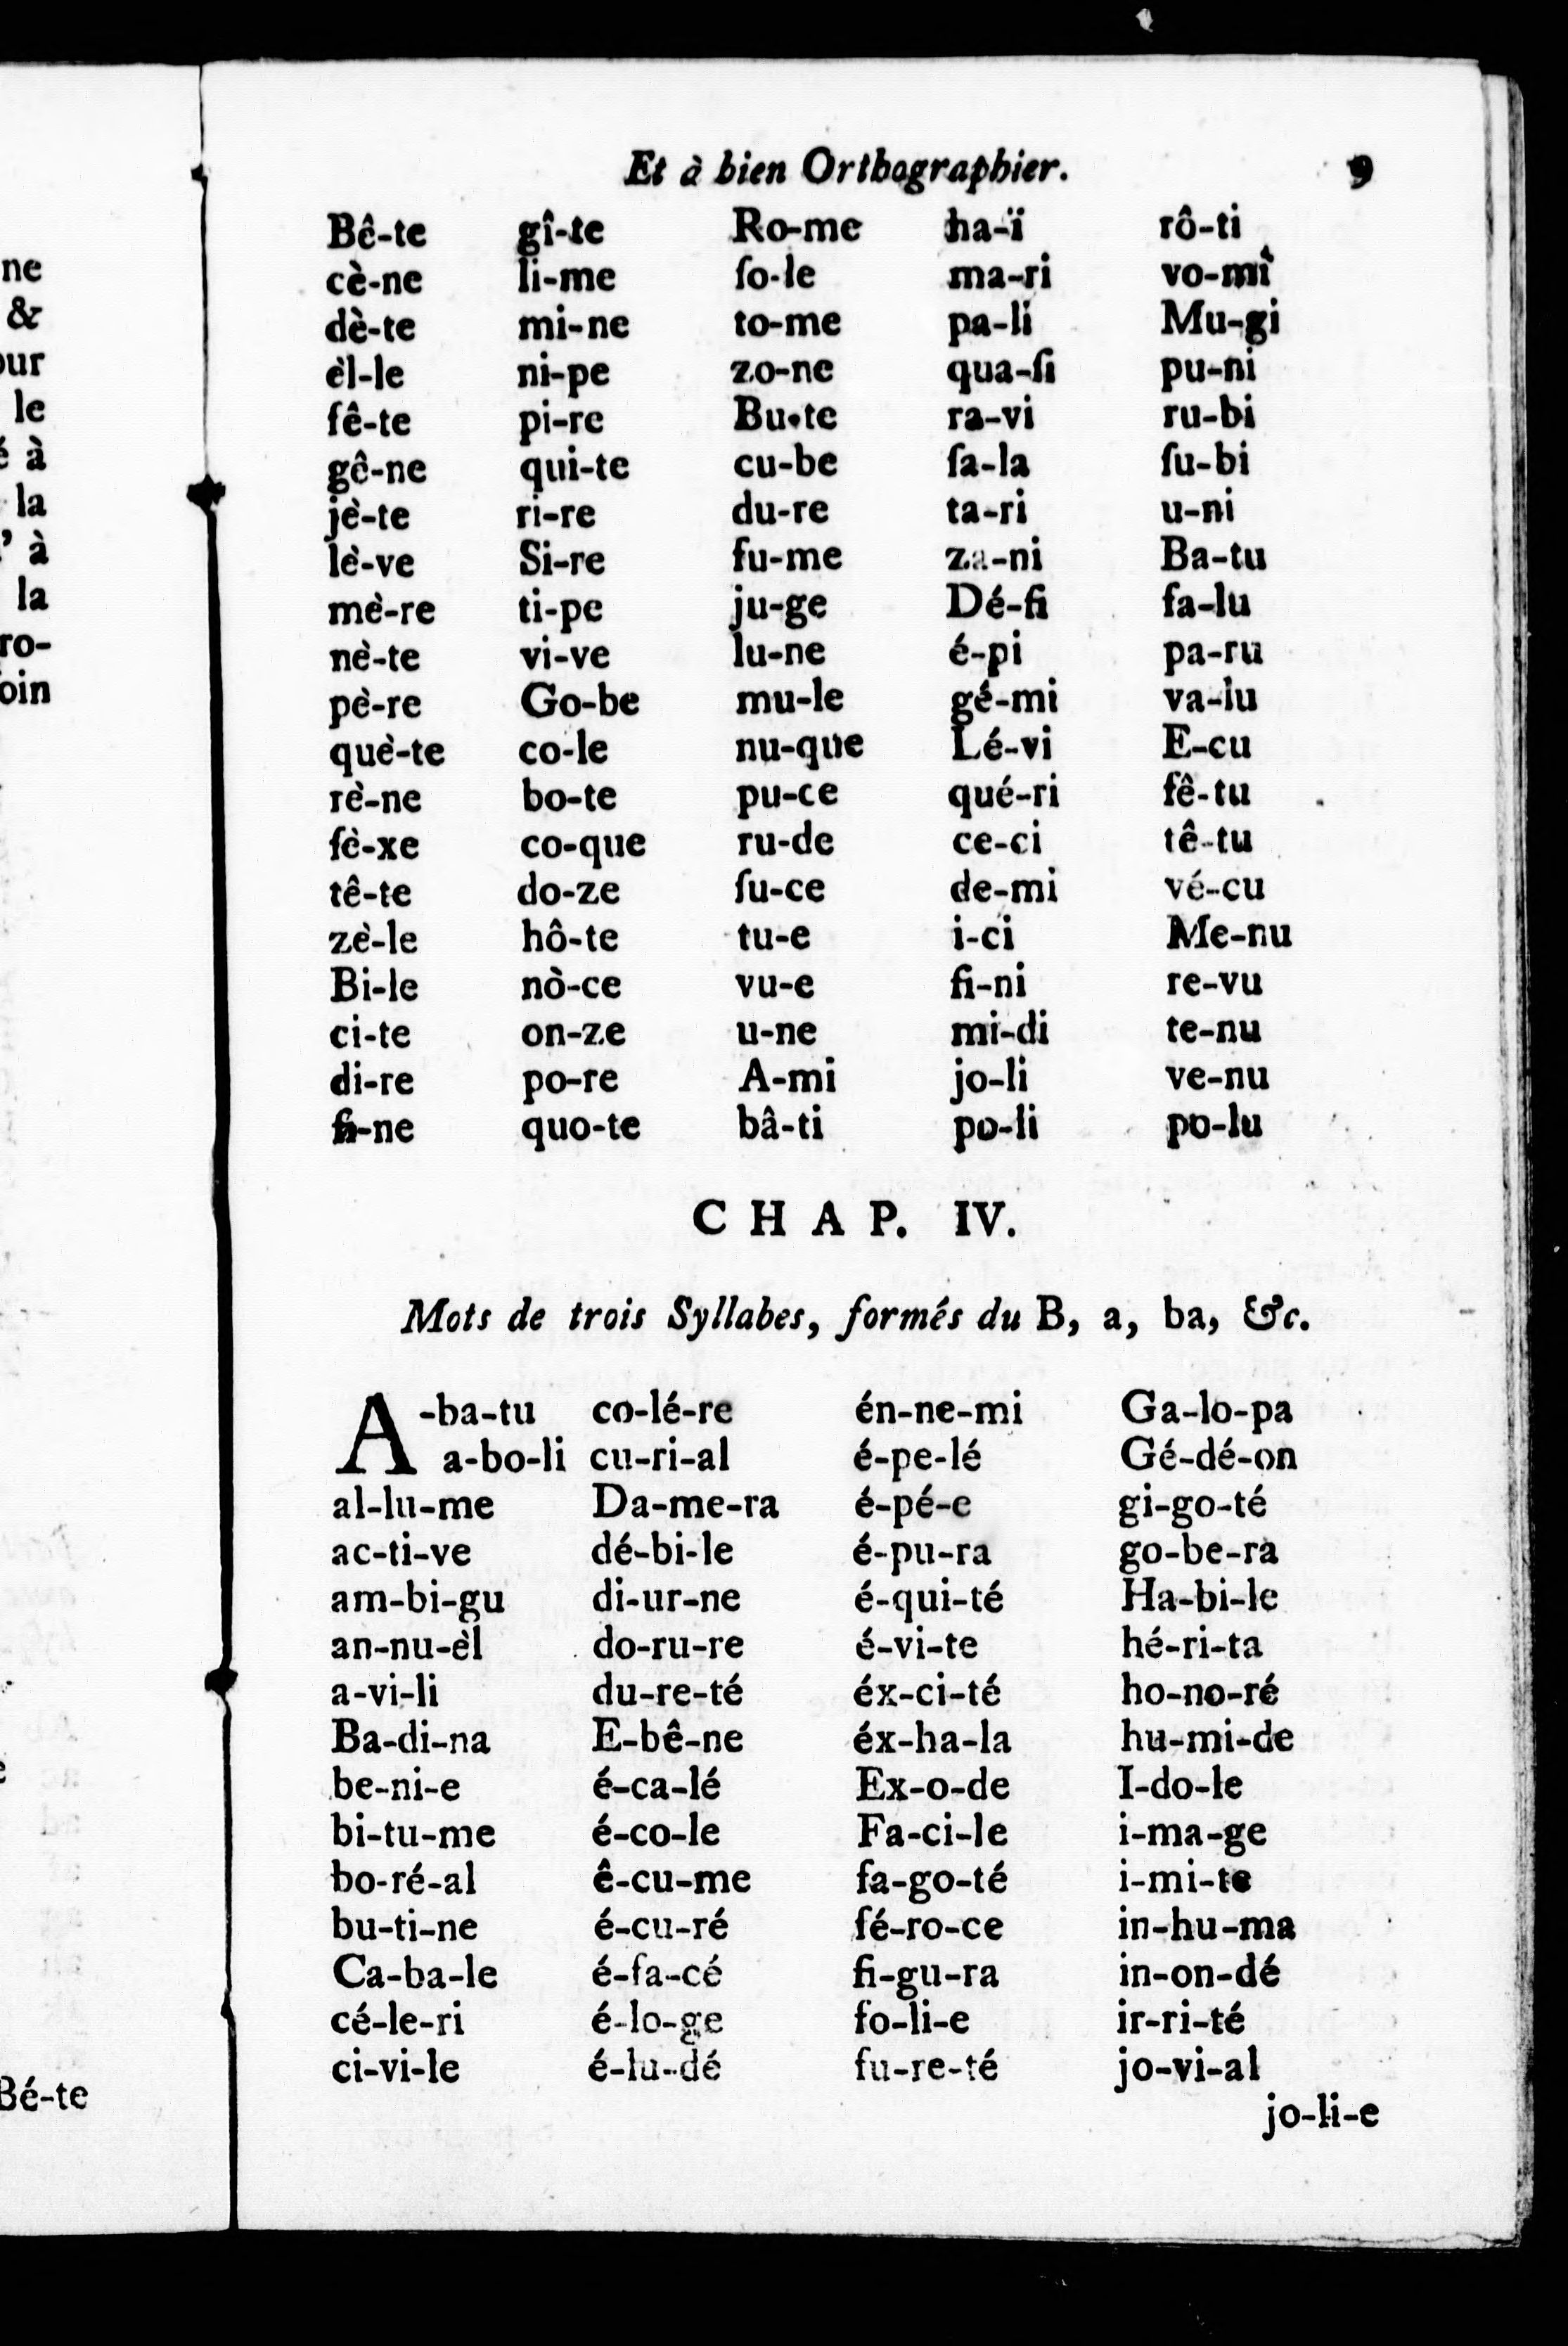 ne
&
our
le
é à
la
' à
la
ro-
oin
Bé-te
Et à bien Orthographier. 9
Bê-te gî-te Ro-me ha-ï rô-ti
cè-ne li-me ſo-le ma-ri vo-mi
dè-te mi-ne to-me pa-li Mu-gi
èl-le ni-pe zo-ne qua-ſi pu-ni
fê-te pi-re Bu-te ra-vi ru-bi
gê-ne qui-te cu-be ſa-la ſu-bi
jè-te ri-re du-re ta-ri u-ni
lè-ve Si-re fu-me za-ni Ba-tu
mè-re ti-pe ju-ge Dé-fi fa-lu
nè-te vi-ve lu-ne é-pi pa-ru
pè-re Go-be mu-le gé-mi va-lu
què-te co-le nu-que Lé-vi E-cu
rè-ne bo-te pu-ce qué-ri fê-tu
ſè-xe co-que ru-de ce-ci tê-tu
tê-te do-ze ſu-ce de-mi vé-cu
zè-le hô-te tu-e i-ci Me-nu
Bi-le nò-ce vu-e fi-ni re-vu
ci-te on-ze u-ne mi-di te-nu
di-re po-re A-mi jo-li ve-nu
fi-ne quo-te bâ-ti po-li po-lu
CHAP. IV.
Mots de trois Syllabes, formés du B, a, ba, &c.
A-ba-tu co-lé-re én-ne-mi Ga-lo-pa
a-bo-li cu-ri-al é-pe-lé Gé-dé-on
al-lu-me Da-me-ra é-pé-e gi-go-té
ac-ti-ve dé-bi-le é-pu-ra go-be-ra
am-bi-gu di-ur-ne é-qui-té Ha-bi-le
an-nu-èl do-ru-re é-vi-te hé-ri-ta
a-vi-li du-re-té éx-ci-té ho-no-ré
Ba-di-na E-bê-ne éx-ha-la hu-mi-de
be-ni-e é-ca-lé Ex-o-de I-do-le
bi-tu-me é-co-le Fa-ci-le i-ma-ge
bo-ré-al ê-cu-me fa-go-té i-mi-te
bu-ti-ne é-cu-ré fé-ro-ce in-hu-ma
Ca-ba-le é-fa-cé fi-gu-ra in-on-dé
cé-le-ri é-lo-ge fo-li-e ir-ri-té
ci-vi-le é-lu-dé fu-re-té jo-vi-al
jo-li-e